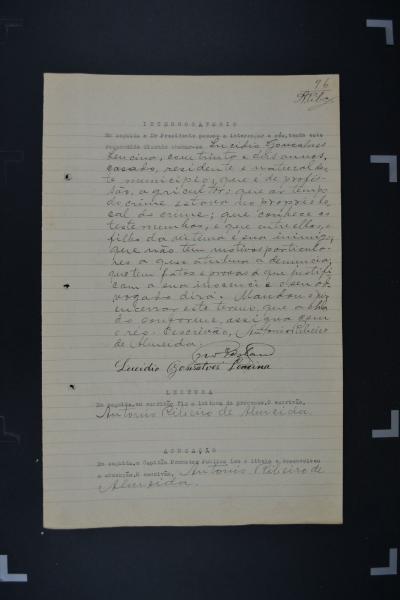 96
INTERROGATORIO
Em seguida o Dr Presidente passou a interrogar o réo, tendo este
respondido chamar-se Lucidio Gonsalves
Lencina, com trinta e dois annos,
casado, residente e natural des-
te municipio, que é de profis-
são, agricultor; que ao tempo
do crime estava no proprio lo-
cal do crime; que conhece as
testemunhas, e que entre ellas, o
filho da victima é seu inimigo;
que não tem motivos particula-
res a que attribua a denuncia;
que tem fatos e provas que justifi-
cam a sua innocencia e o seu ad-
vogado dirá. Mandou
encerrar este termo, que achado
conforme, assigna com
o réo. Escrivão, Antonio Ribeiro
de Almeida.
Lucidio Gonsalves Lencina
LEITURA
Em seguida, eu escrivão fiz a leitura do processo. O escrivão,
Antonio Ribeiro de Almeida.
ACUSAÇÃO
Em seguida, o Capitão Promotor Publico leu o libelo e desenvolveu
a acusação. O escrivão, Antonio Ribeiro de
Almeida.